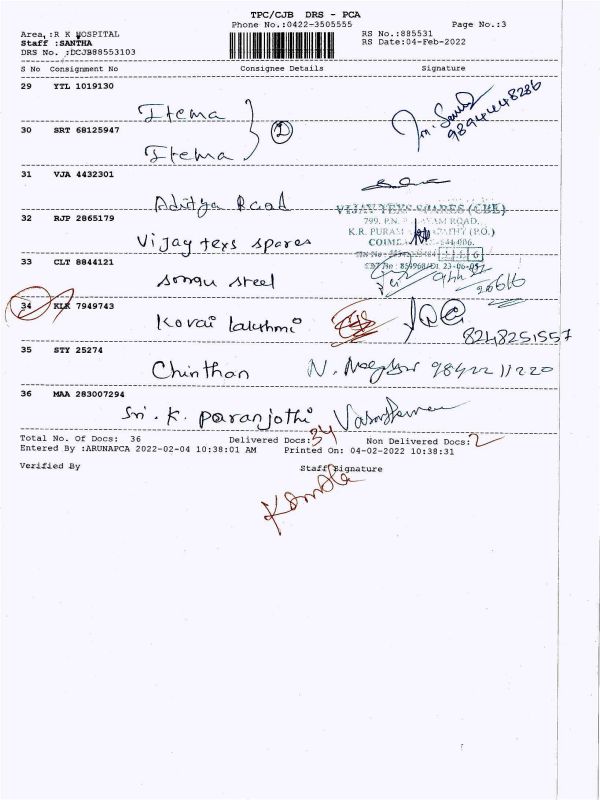 TPC/CJB DRS - PCA
Phone No.:0422-3505555
Page No.:3
Area :R K HOSPITAL
RS No.:885531
Staff :SANTHA
RS Date:04-Feb-2022
DRS No. :DCJB88553103
S No Consignment No Consignee Details Signature
29 YTL 1019130
Itema
9894448286
30 SRT 68125947
2
Itema
31 VJA 4432301
Aditya Raod
VIJAY TEXS SPARES (CBE)
32 RJP 2865179
799, P.N. ROAD,
Vijay texs spares
K.R. PURAM (P.O.)
33 CLT 8844121
23-06-
steel
34 KLK 7949743
Kovai lakshmi
8248251557
35 STY 25274
Chinthan
98422 11220
36 MAA 283007294
Sri. K. Paranjothi
Total No. Of Docs: 36 Delivered Docs: 34 Non Delivered Docs: 2
Entered By :ARUNAPCA 2022-02-04 10:38:01 AM Printed On: 04-02-2022 10:38:31
Verified By Staff Signature